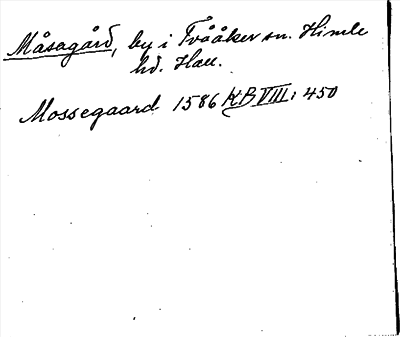 Måsagård, by i Tvååker sn. Himle
hd. Hall.
Mossegaard 1586 KB VIII: 450